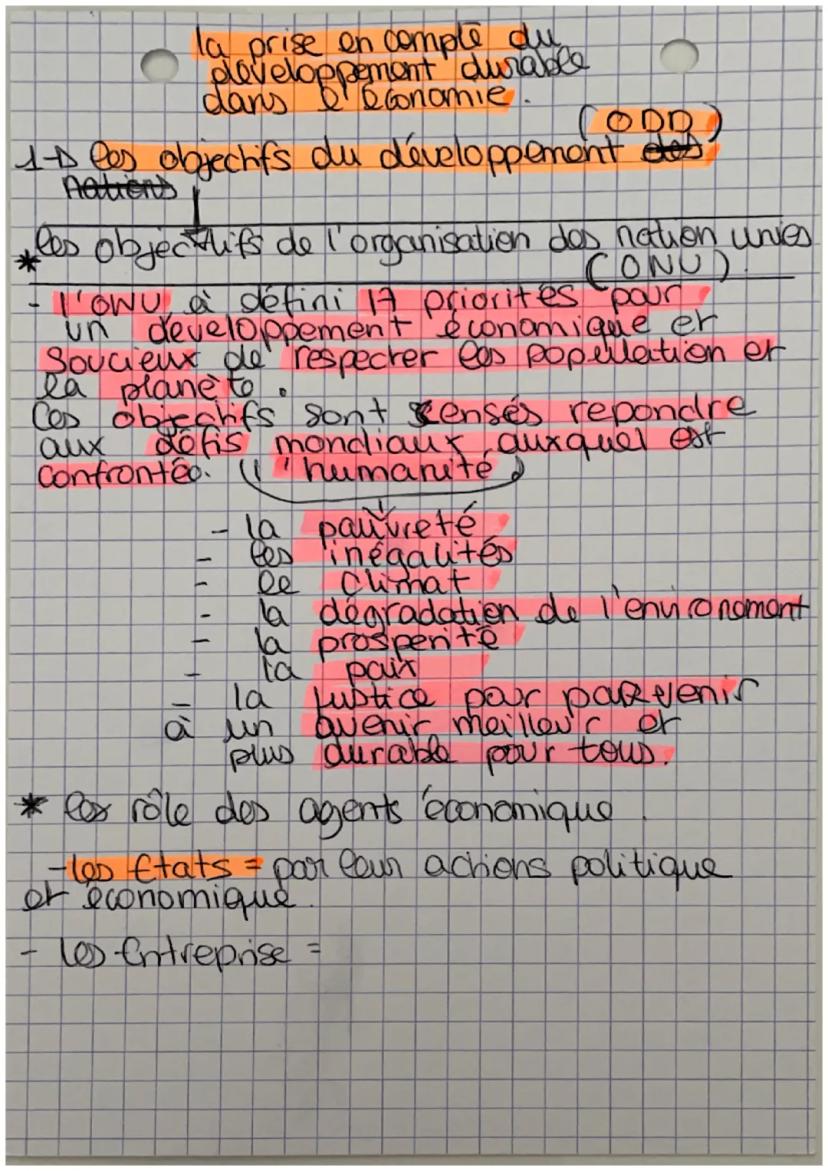 la prise en compte du
développement durable
dans l'économie.
(ODD)
1-D les objectifs du développement des
nations
* les objectifs de l'organisation des nation unies
(ONU)
- l'ONU à défini 17 priorités pour
un développement économique et
soucieux de respecter les population et
la planète.
Ces objectifs sont censés repondre
aux défis mondiaux auxquel est
confrontée. l'humanité
- la pauvreté
- les inégalités
- le climat
- la dégradation de l'environoment
- la prosperité
- la paix
- la justice par parvenir
à un avenir meilleur et
plus durable pour tous.
* les rôle des agents économique.
- les Etats = par leur actions politique
et économique.
- les Entreprise =